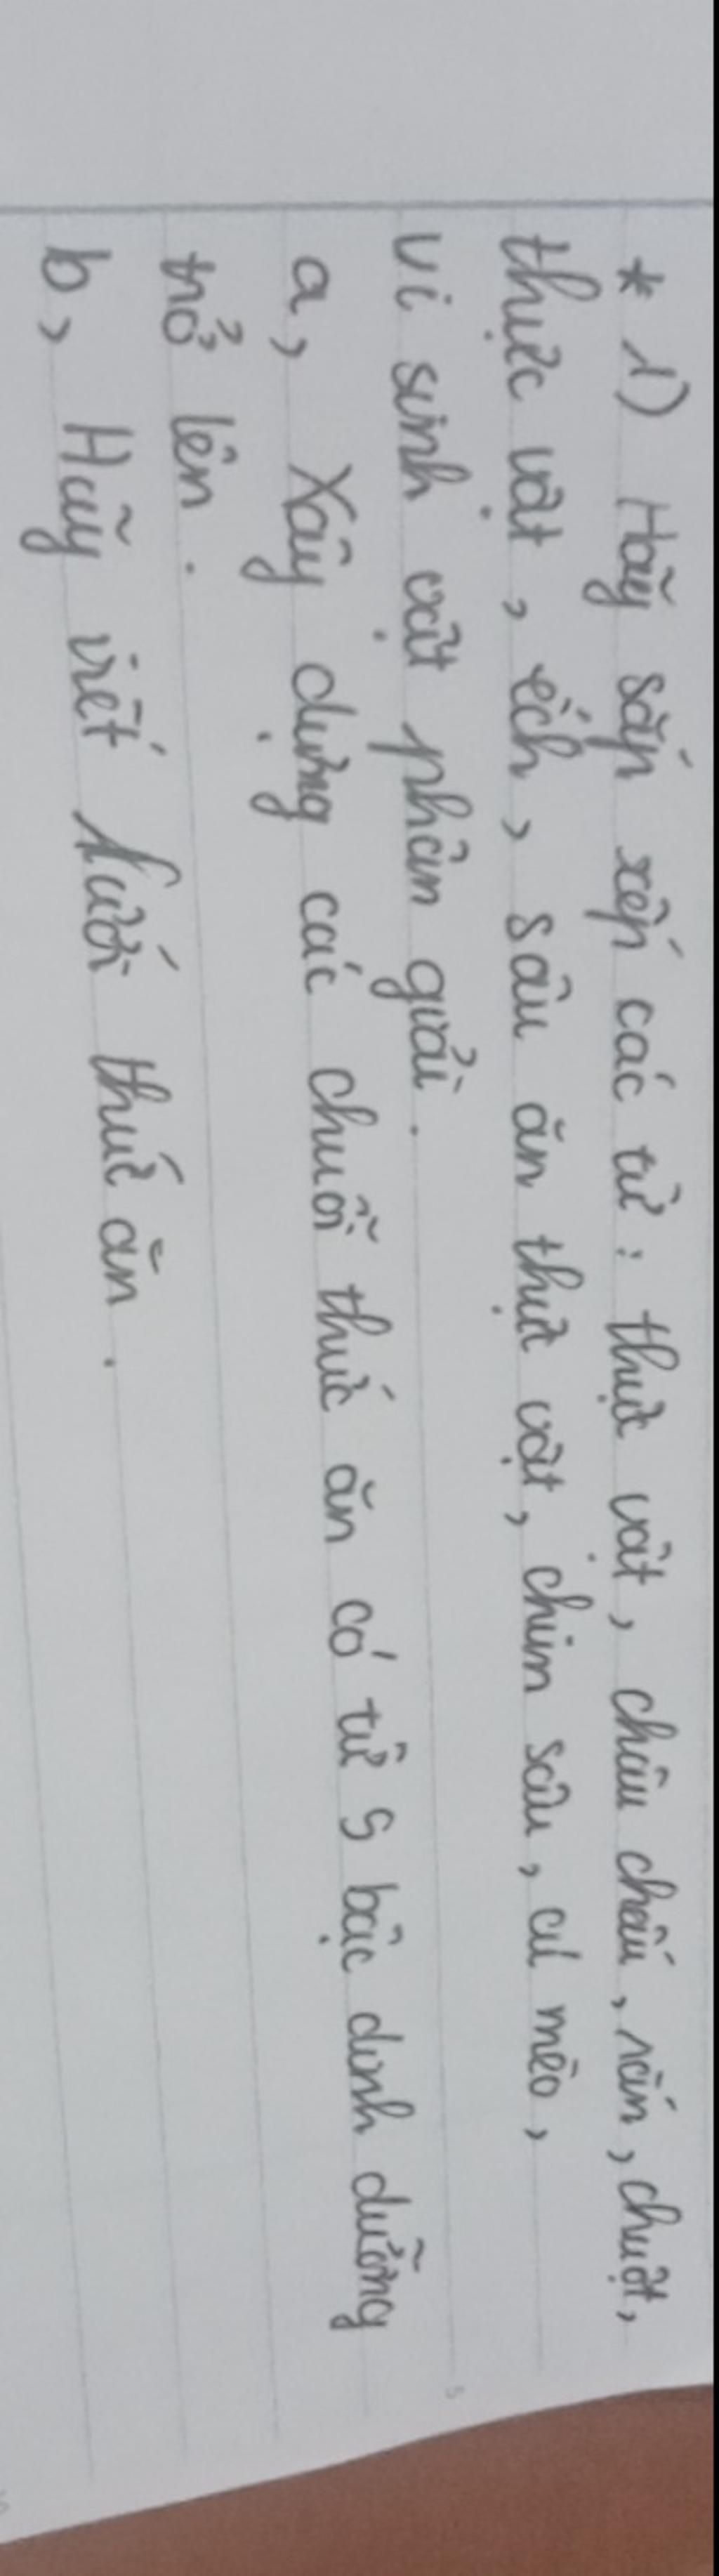 * 1) Hãy sắp xếp các từ : thực vật, châu chấu, rắn, chuột,
thực vật, ếch, sâu ăn thực vật, chim sâu, cú mèo,
vi sinh vật phân giải.
a, Xây dựng các chuỗi thức ăn có từ 5 bậc dinh dưỡng
trở lên.
b, Hãy viết lưới thức ăn.